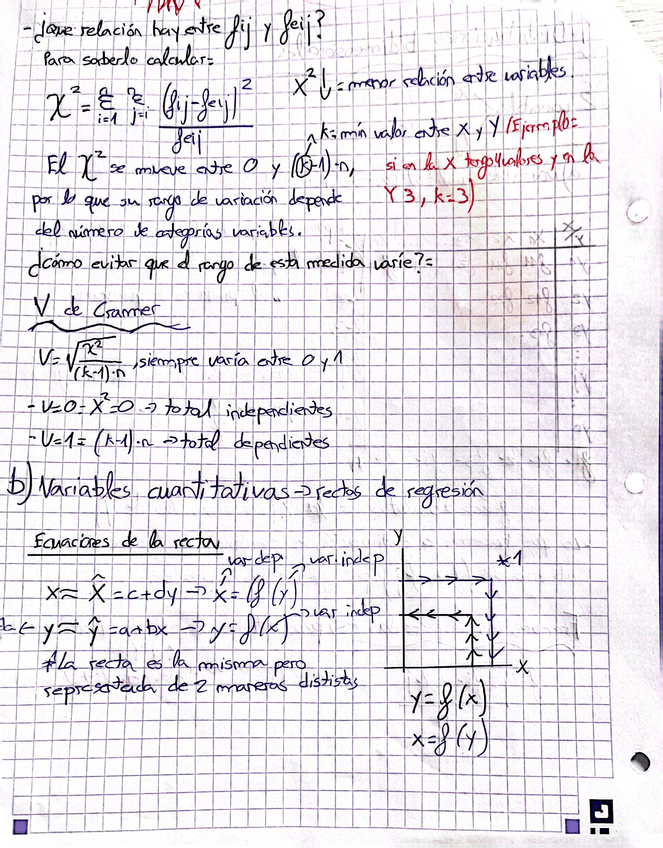 - ¿Que relación hay entre fij y feij?
Para saberlo calcular=
χ² = Σ i=1 Σ j=i (fij-feij)² / feij
X²↓ = menor relación entre variables
k = min valor entre X y Y (Ejemplo=
si en la X tengo 4 valores y en la
Y 3, k=3)
El χ² se mueve entre 0 y (k-1)·n,
por lo que su rango de variación depende
del número de categorías variables.
¿Cómo evitar que el rango de esta medida varíe?=
V de Cramer
V=√(χ²/(k-1)·n), siempre varía entre 0 y 1
- V=0=X²=0 → total independientes
- V=1=(k-1)·n → total dependientes
b) Variables cuantitativas → rectas de regresión
Ecuaciones de la recta
var dep var. indep
x ≈ x̂ = c+dy → x̂ = f(y)
y ≈ ŷ = a+bx → y = f(x) → var indep
*La recta es la misma pero
representada de 2 maneras dististas
y
*1
x
y=f(x)
x=f(y)